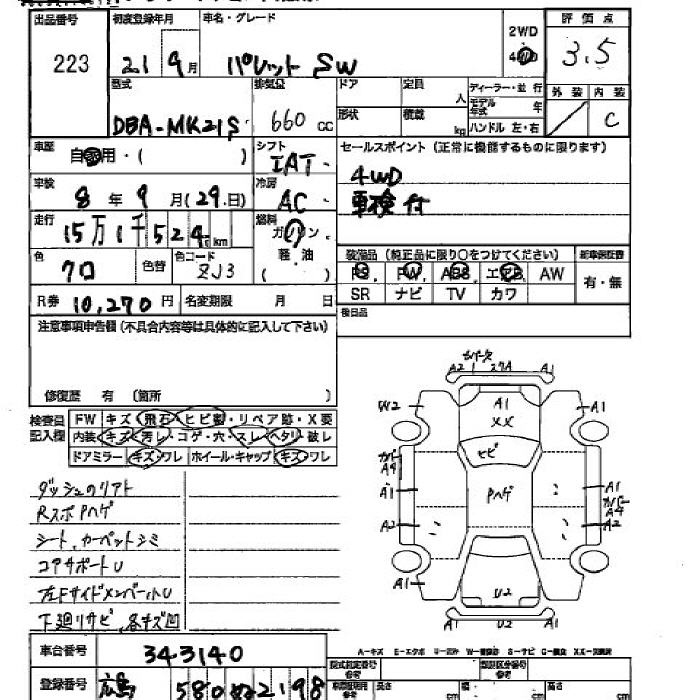 出品番号 初度登録年月 車名・グレード 2WD 4WD 評価点
223 21 9月 パレット SW 3.5
型式 排気量 ドア 定員 人 ディーラー・並行 外装 内装
DBA-MK21S 660 CC 形状 積載 kg モデル年式 年 ハンドル 左・右 C
車歴 自家用・( ) シフト IAT セールスポイント(正常に機能するものに限ります)
車検 8年9月(29日) 冷房 AC 4WD
車検付
走行 15万1千524km 燃料 ガソリン 軽油 ( )
装備品(純正品に限り○をつけてください) 新車保証書
色 クロ 色替 色コード ZJ3 PS, PW, ABS, エアB, AW 有・無
SR ナビ TV カワ
R券 10,270円 名変期限 月 日 後日品
注意事項申告欄(不具合内容等は具体的に記入して下さい)
修復歴 有(箇所 )
検査員記入欄 FW キズ・飛石・ヒビ割・リペア跡・X要
内装 キズ・汚レ・コゲ・穴・スレ・ヘタリ・破レ
ドアミラー キズ・ワレ ホイール・キャップ キズ・ワレ
ダッシュのリアト
RスポPハゲ
シート、カーペットシミ
コアサポートU
左FサイドメンバーU
下廻リサビ、各キズ凹
カバー欠
A2 27A A1
W2 A1 XX A1
ヒビ
カバー A4 A1 Pハゲ A1 カバー A4
A2 A2
A1 U2 A1
A1 U2 A1
A-キズ E-エクボ U-凹み W-補修跡 S-サビ C-腐食 XX-交換済
車台番号 343140 型式指定番号 類別区分番号
登録番号 広島 580 2198 長さ cm 幅 cm 高さ cm